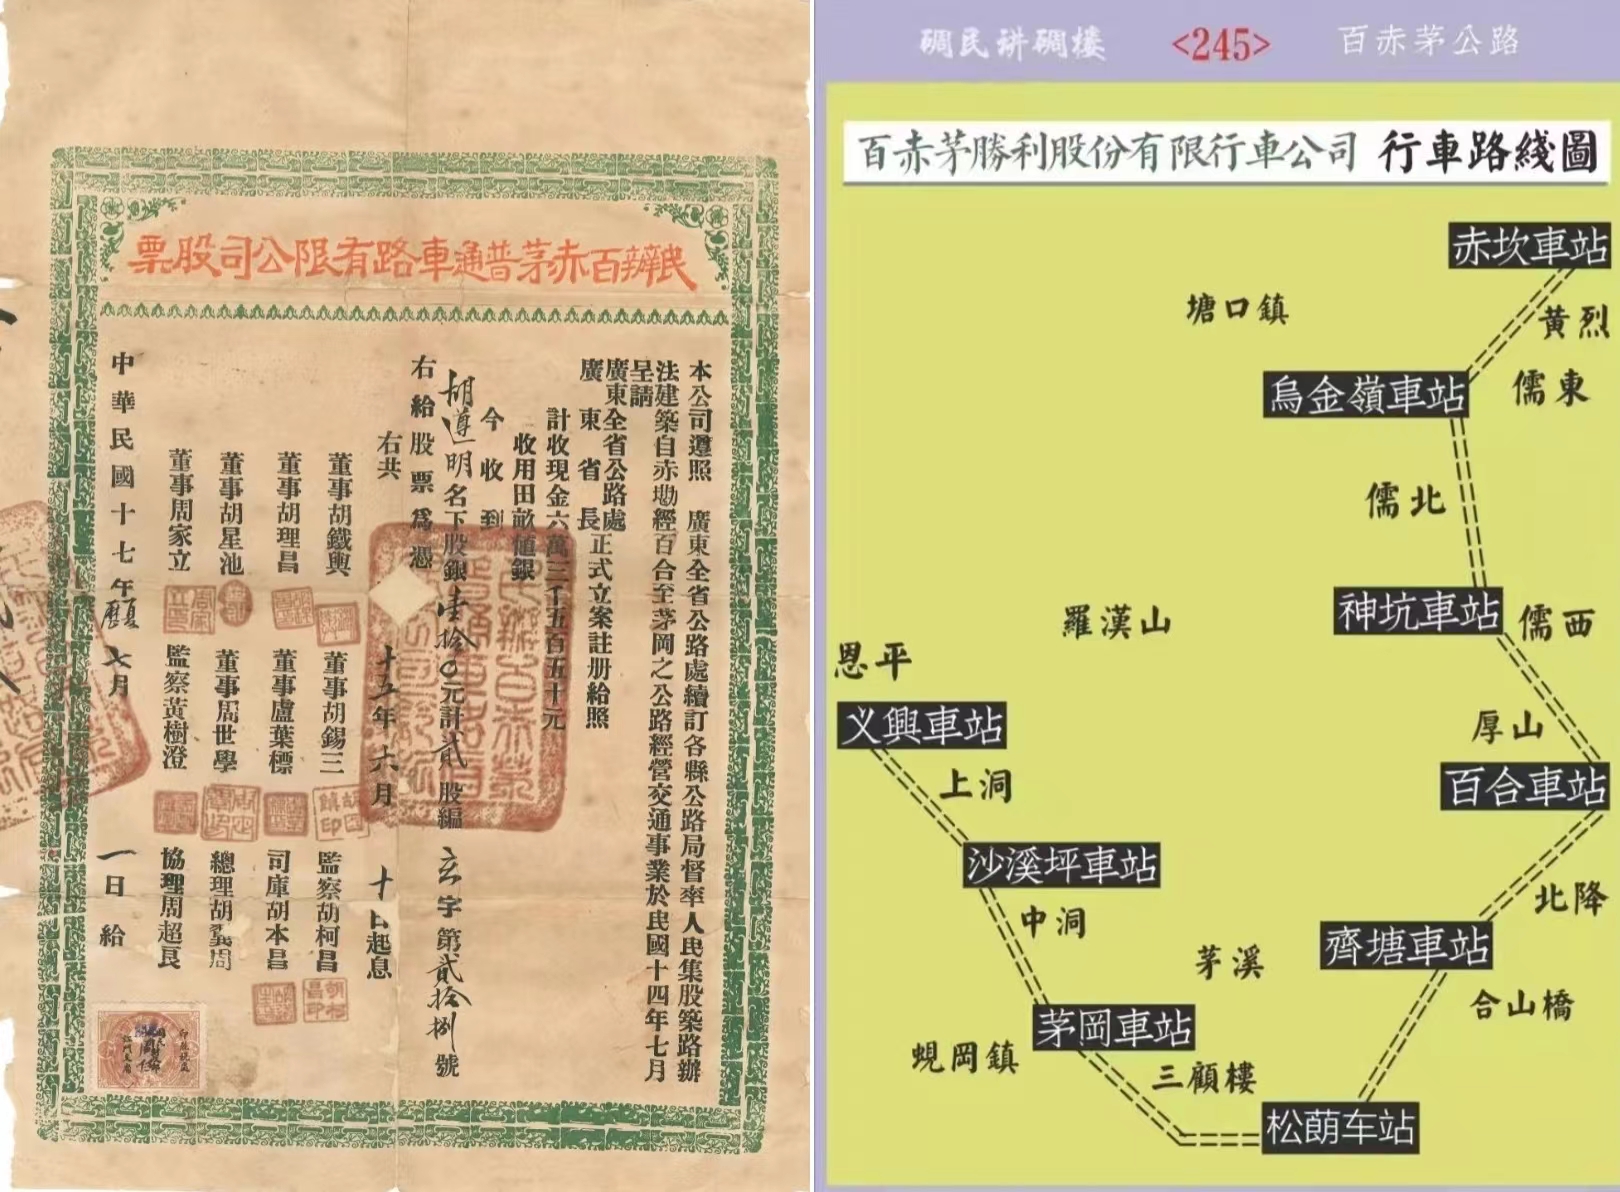 民辦百赤茅普通車路有限公司股票
本公司遵照 廣東全省公路處續訂各縣公路局督率人民集股築路辦
法建築自赤墈經百合至茅岡之公路經營交通事業於民國十四年七月
呈請
廣東全省公路處
廣東省長正式立案註册給照
計收現金六萬三千五百五十元
收用田畝値銀
今收到
胡遵明名下股銀壹拾〇元計貳股編玄字第貳拾捌號
右給股票爲憑
右共 十五年六月 十日起息
董事胡鐵輿 董事胡錫三 監察胡柯昌
董事胡理昌 董事盧葉標 司庫胡本昌
董事胡星池 董事周世學 總理胡龔周
董事周家立 監察黃樹澄 協理周超良
中華民國十七年夏曆七月 一日給
碉民講碉樓 <245> 百赤茅公路
百赤茅勝利股份有限行車公司 行車路綫圖
赤坎車站
塘口鎮
黃烈
烏金嶺車站
儒東
儒北
神坑車站
儒西
羅漢山
恩平
义興車站
厚山
上洞
百合車站
沙溪坪車站
北降
中洞
齊塘車站
茅溪
合山橋
茅岡車站
蜆岡鎮
三顧樓
松蓢车站